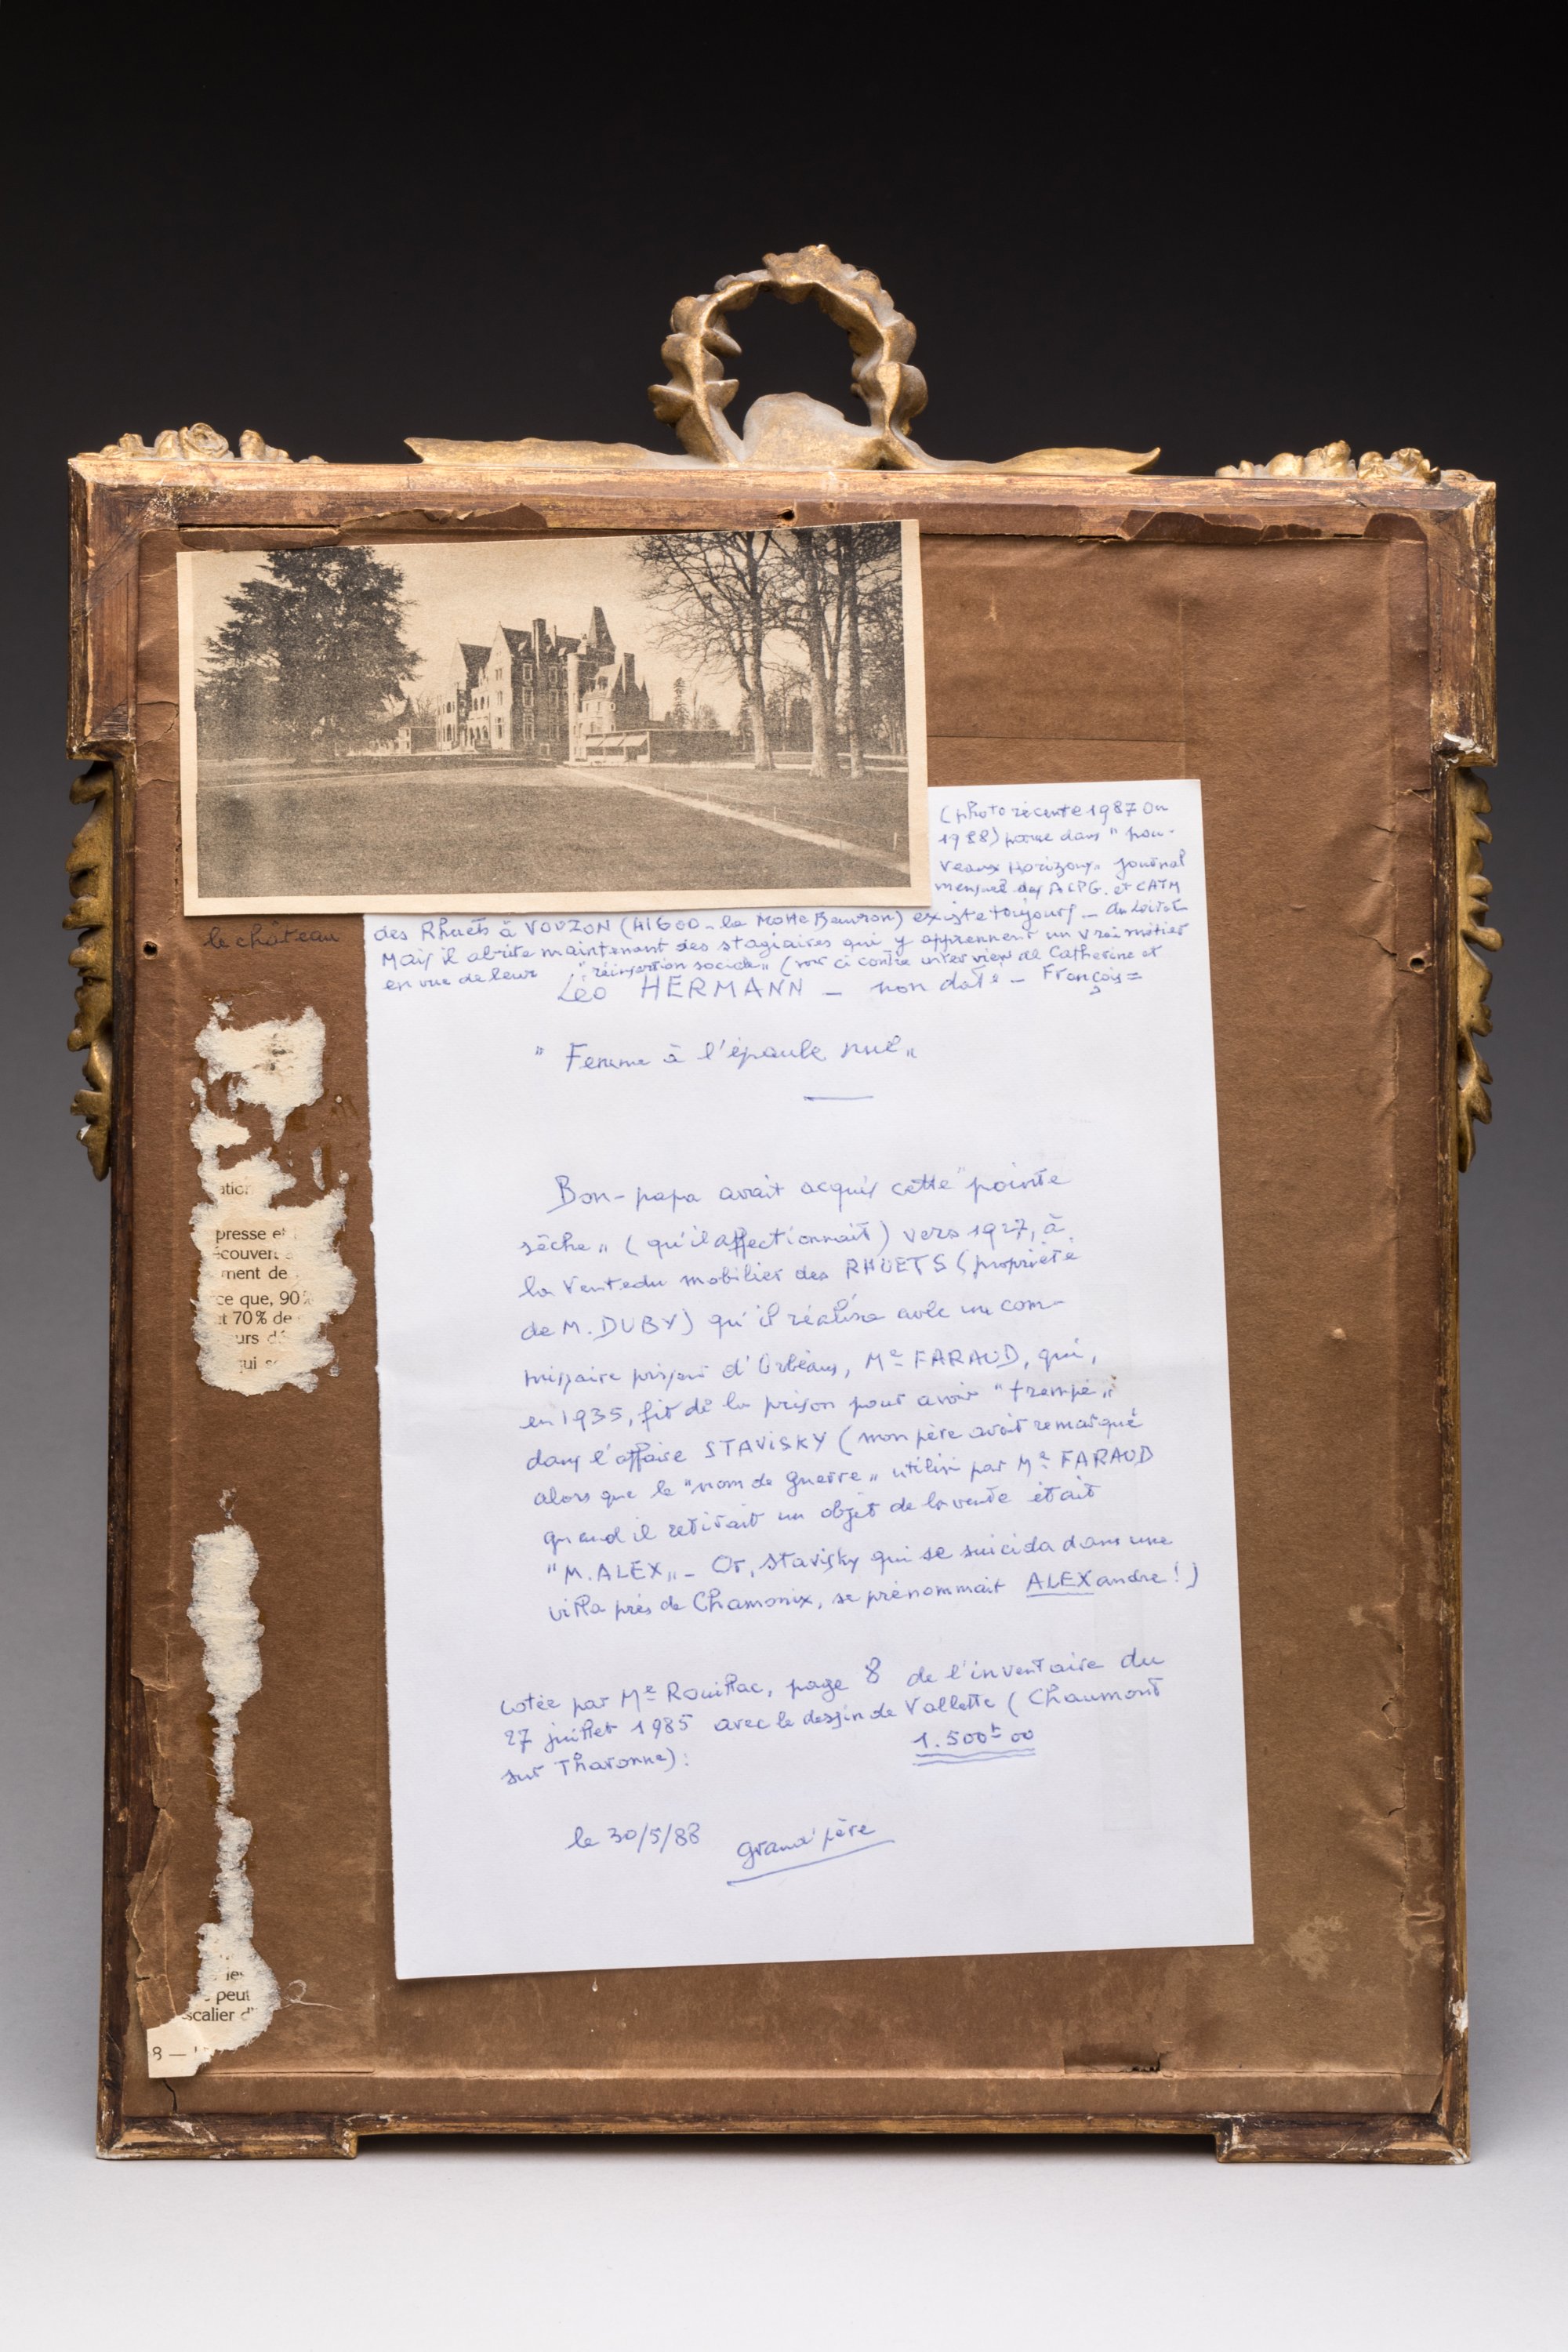 (photo récente 1987 ou
1988) parue dans "nou-
veaux Horizons" journal
mensuel des ACPG. et CATM
le château
des Rhuets à VOUZON (41600 - la Motte Beuvron) existe toujours - du Loiret
Mais il abrite maintenant des stagiaires qui y apprennent un vrai métier
en vue de leur "réinsertion sociale" (voir ci contre interview de Catherine et
François =
Léo HERMANN - non daté -
"Femme à l'épaule nue"
Bon-papa avait acquis cette "pointe
sèche" (qu'il affectionnait) vers 1927, à
la vente du mobilier des RHUETS (propriété
de M. DUBY) qu'il réalisa avec un com-
missaire priseur d'Orléans, Me FARAUD, qui,
en 1935, fit de la prison pour avoir "trempé"
dans l'affaire STAVISKY (mon père avait remarqué
alors que le "nom de guerre" utilisé par Me FARAUD
quand il retirait un objet de la vente était
"M. ALEX" - Or, Stavisky qui se suicida dans une
villa près de Chamonix, se prénommait ALEXandre!)
cotée par Me Rouillac, page 8 de l'inventaire du
27 juillet 1985 avec le dessin de Vallette (Chaumont
sur Tharonne): 1.500F 00
le 30/5/88 grand'père
ation
presse et
écouvert
ment de
ce que, 90%
et 70% de
urs dé
qui se
les
peut
scalier d'
8 —